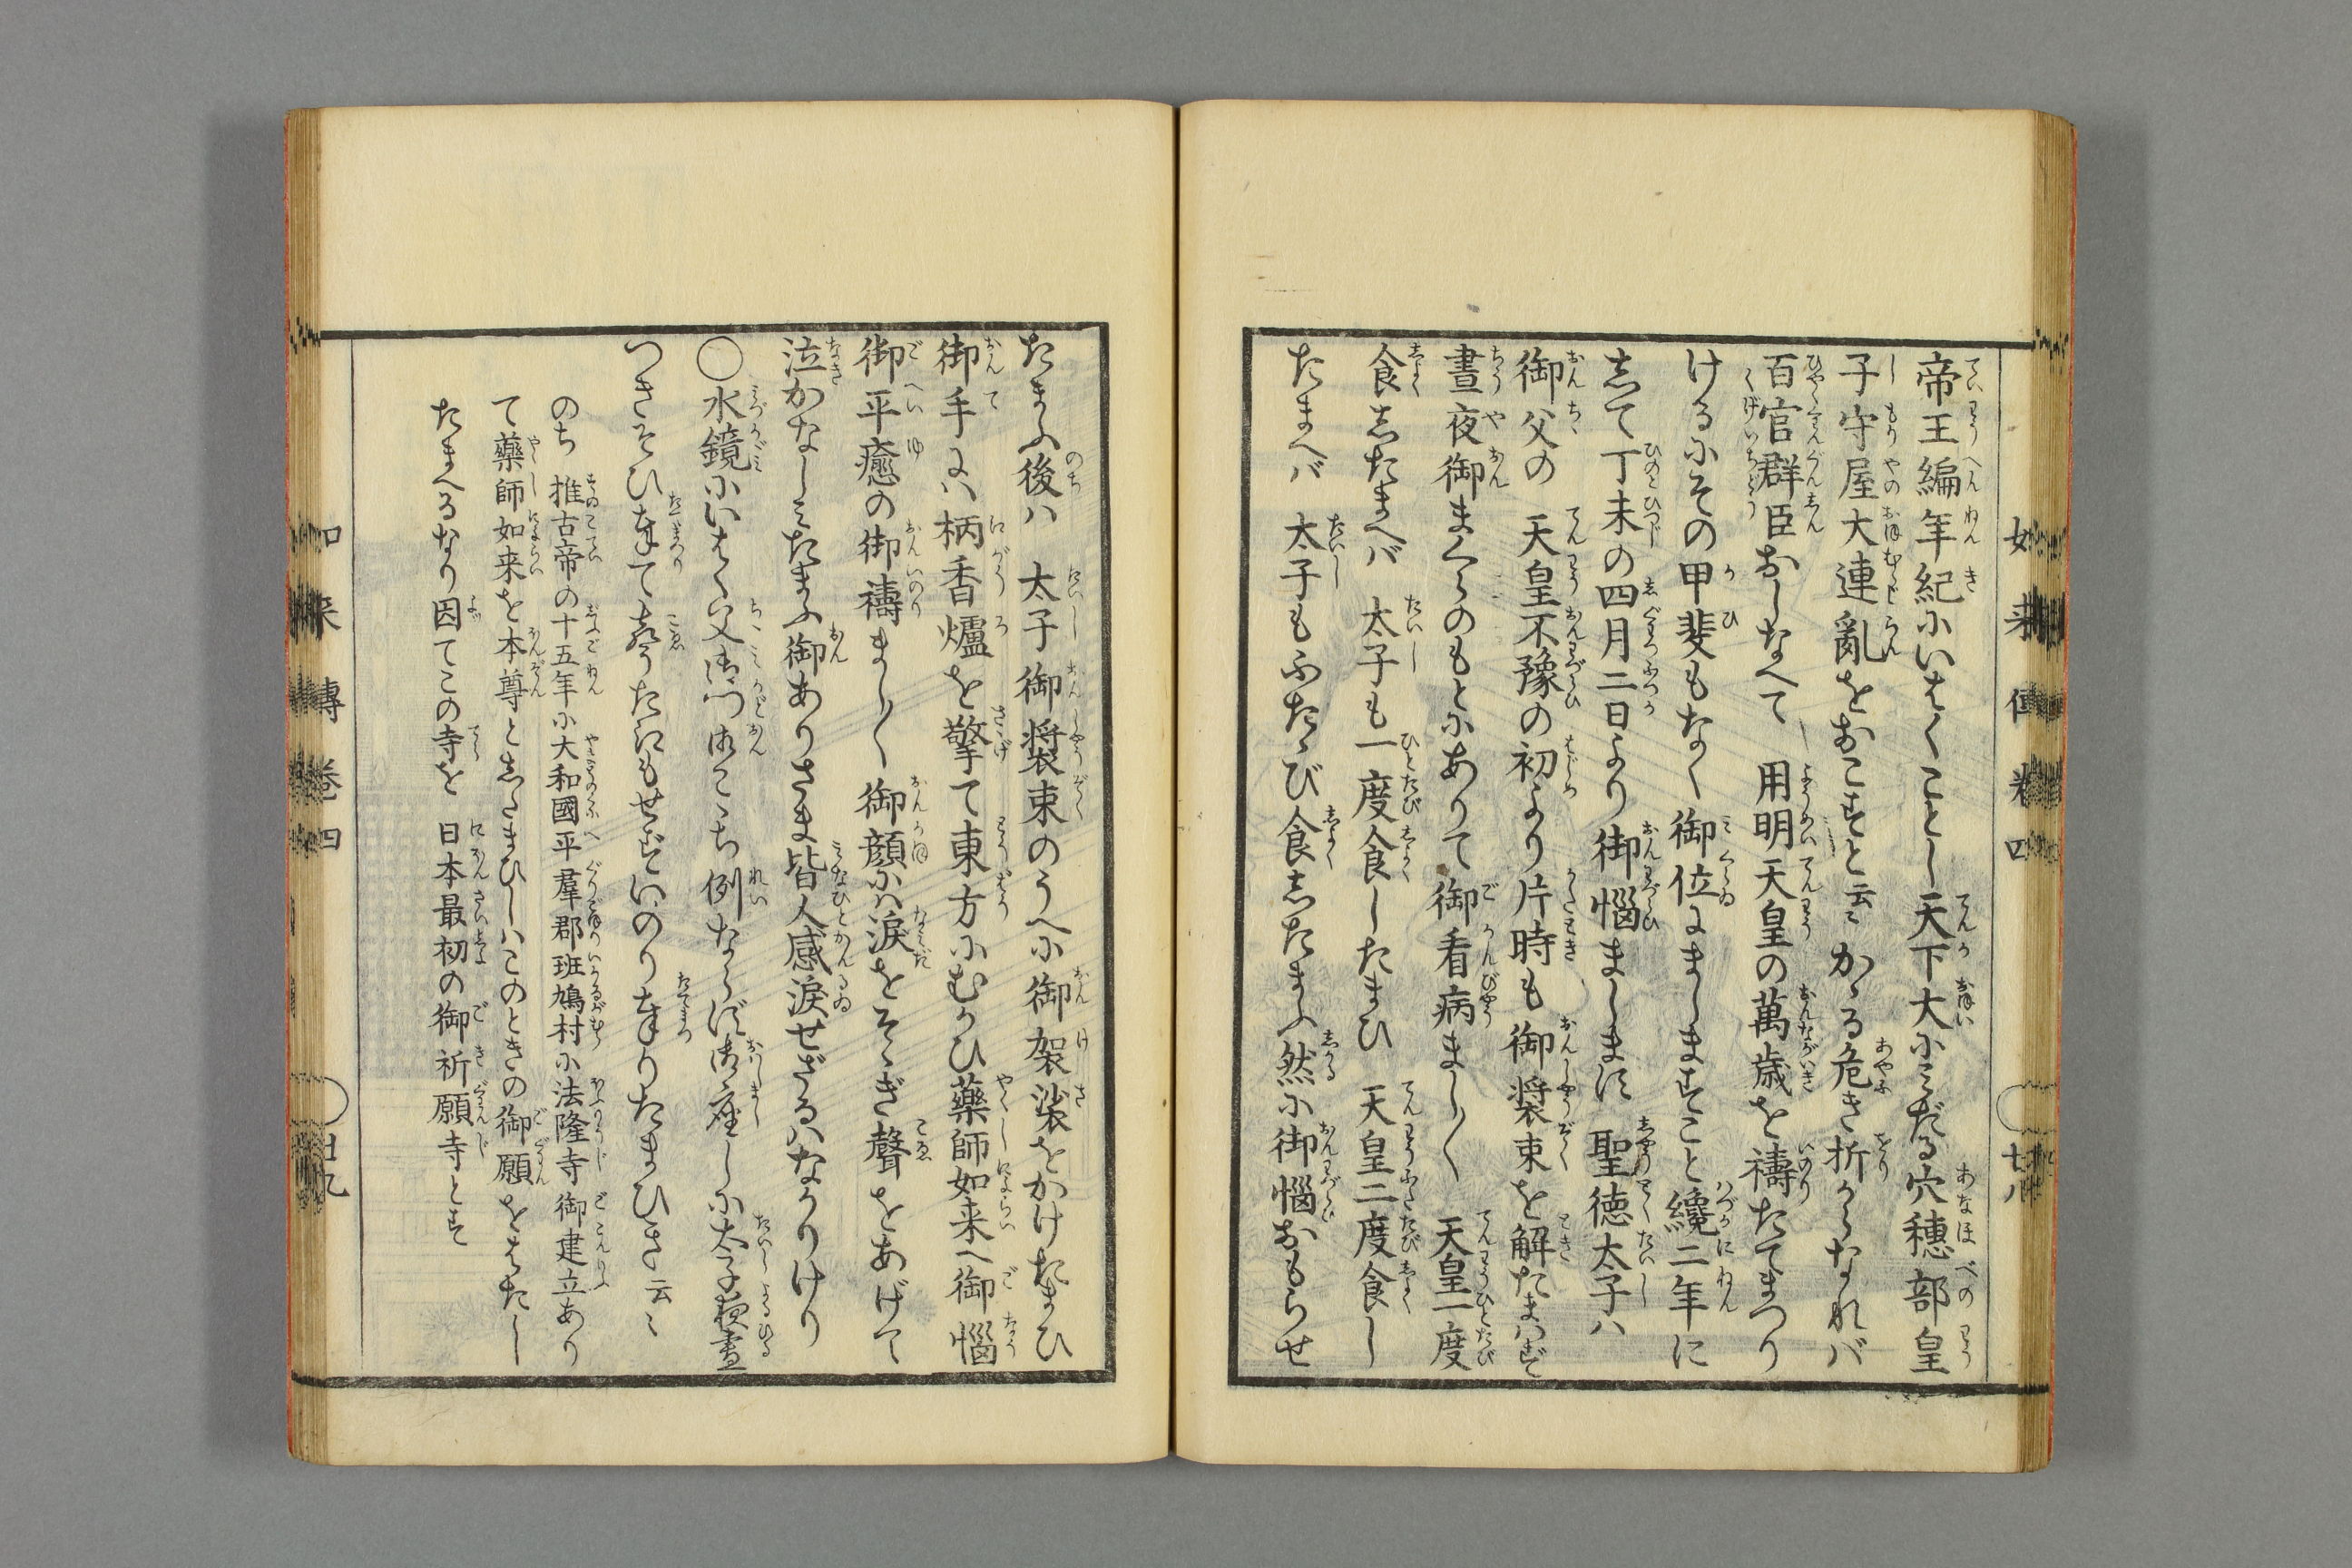 帝王編年紀にいはくことし天下大にみだる穴穂部皇
子守屋大連亂をおこすと云〻かゝる危き折からなれバ
百官群臣おしなへて　用明天皇の萬歳を禱たてまつり
けるにその甲斐もなく御位にましますこと纔二年に
して丁未の四月二日より御惱ましまに　聖徳太子ハ
御父の　天皇不豫の初より片時も御裝束を解たまはず
晝夜御まくらのもとにありて御看病まし〳〵　天皇一度
食したまへバ　太子も一度食したまひ　天皇二度食し
たまへバ　太子もふたゝび食したまふ然に御惱おもらせ
たまふ後ハ　太子御裝束のうへに御袈裟をかけたまひ
御手にハ柄香爐を擎て東方にむかひ藥師如来へ御惱
御平癒の御禱まし〳〵御顔にハ涙をそゝぎ聲をあげて
泣かなしみたまふ御ありさま皆人感涙せざるハなかりけり
〇水鏡にいはく父御門御こゝち例ならず御座しに太子夜晝
つきそひ奉て聲うたえもせずいのり奉りたまひき云〻
のち　推古帝の十五年に大和國平羣郡班鳩村に法隆寺御建立あり
て藥師如来を本尊としたまひしハこのときの御願をはたし
たまへるなり因てこの寺を　日本最初の御祈願寺とす
如来傳卷四
廿八
如来傳卷四
廿九